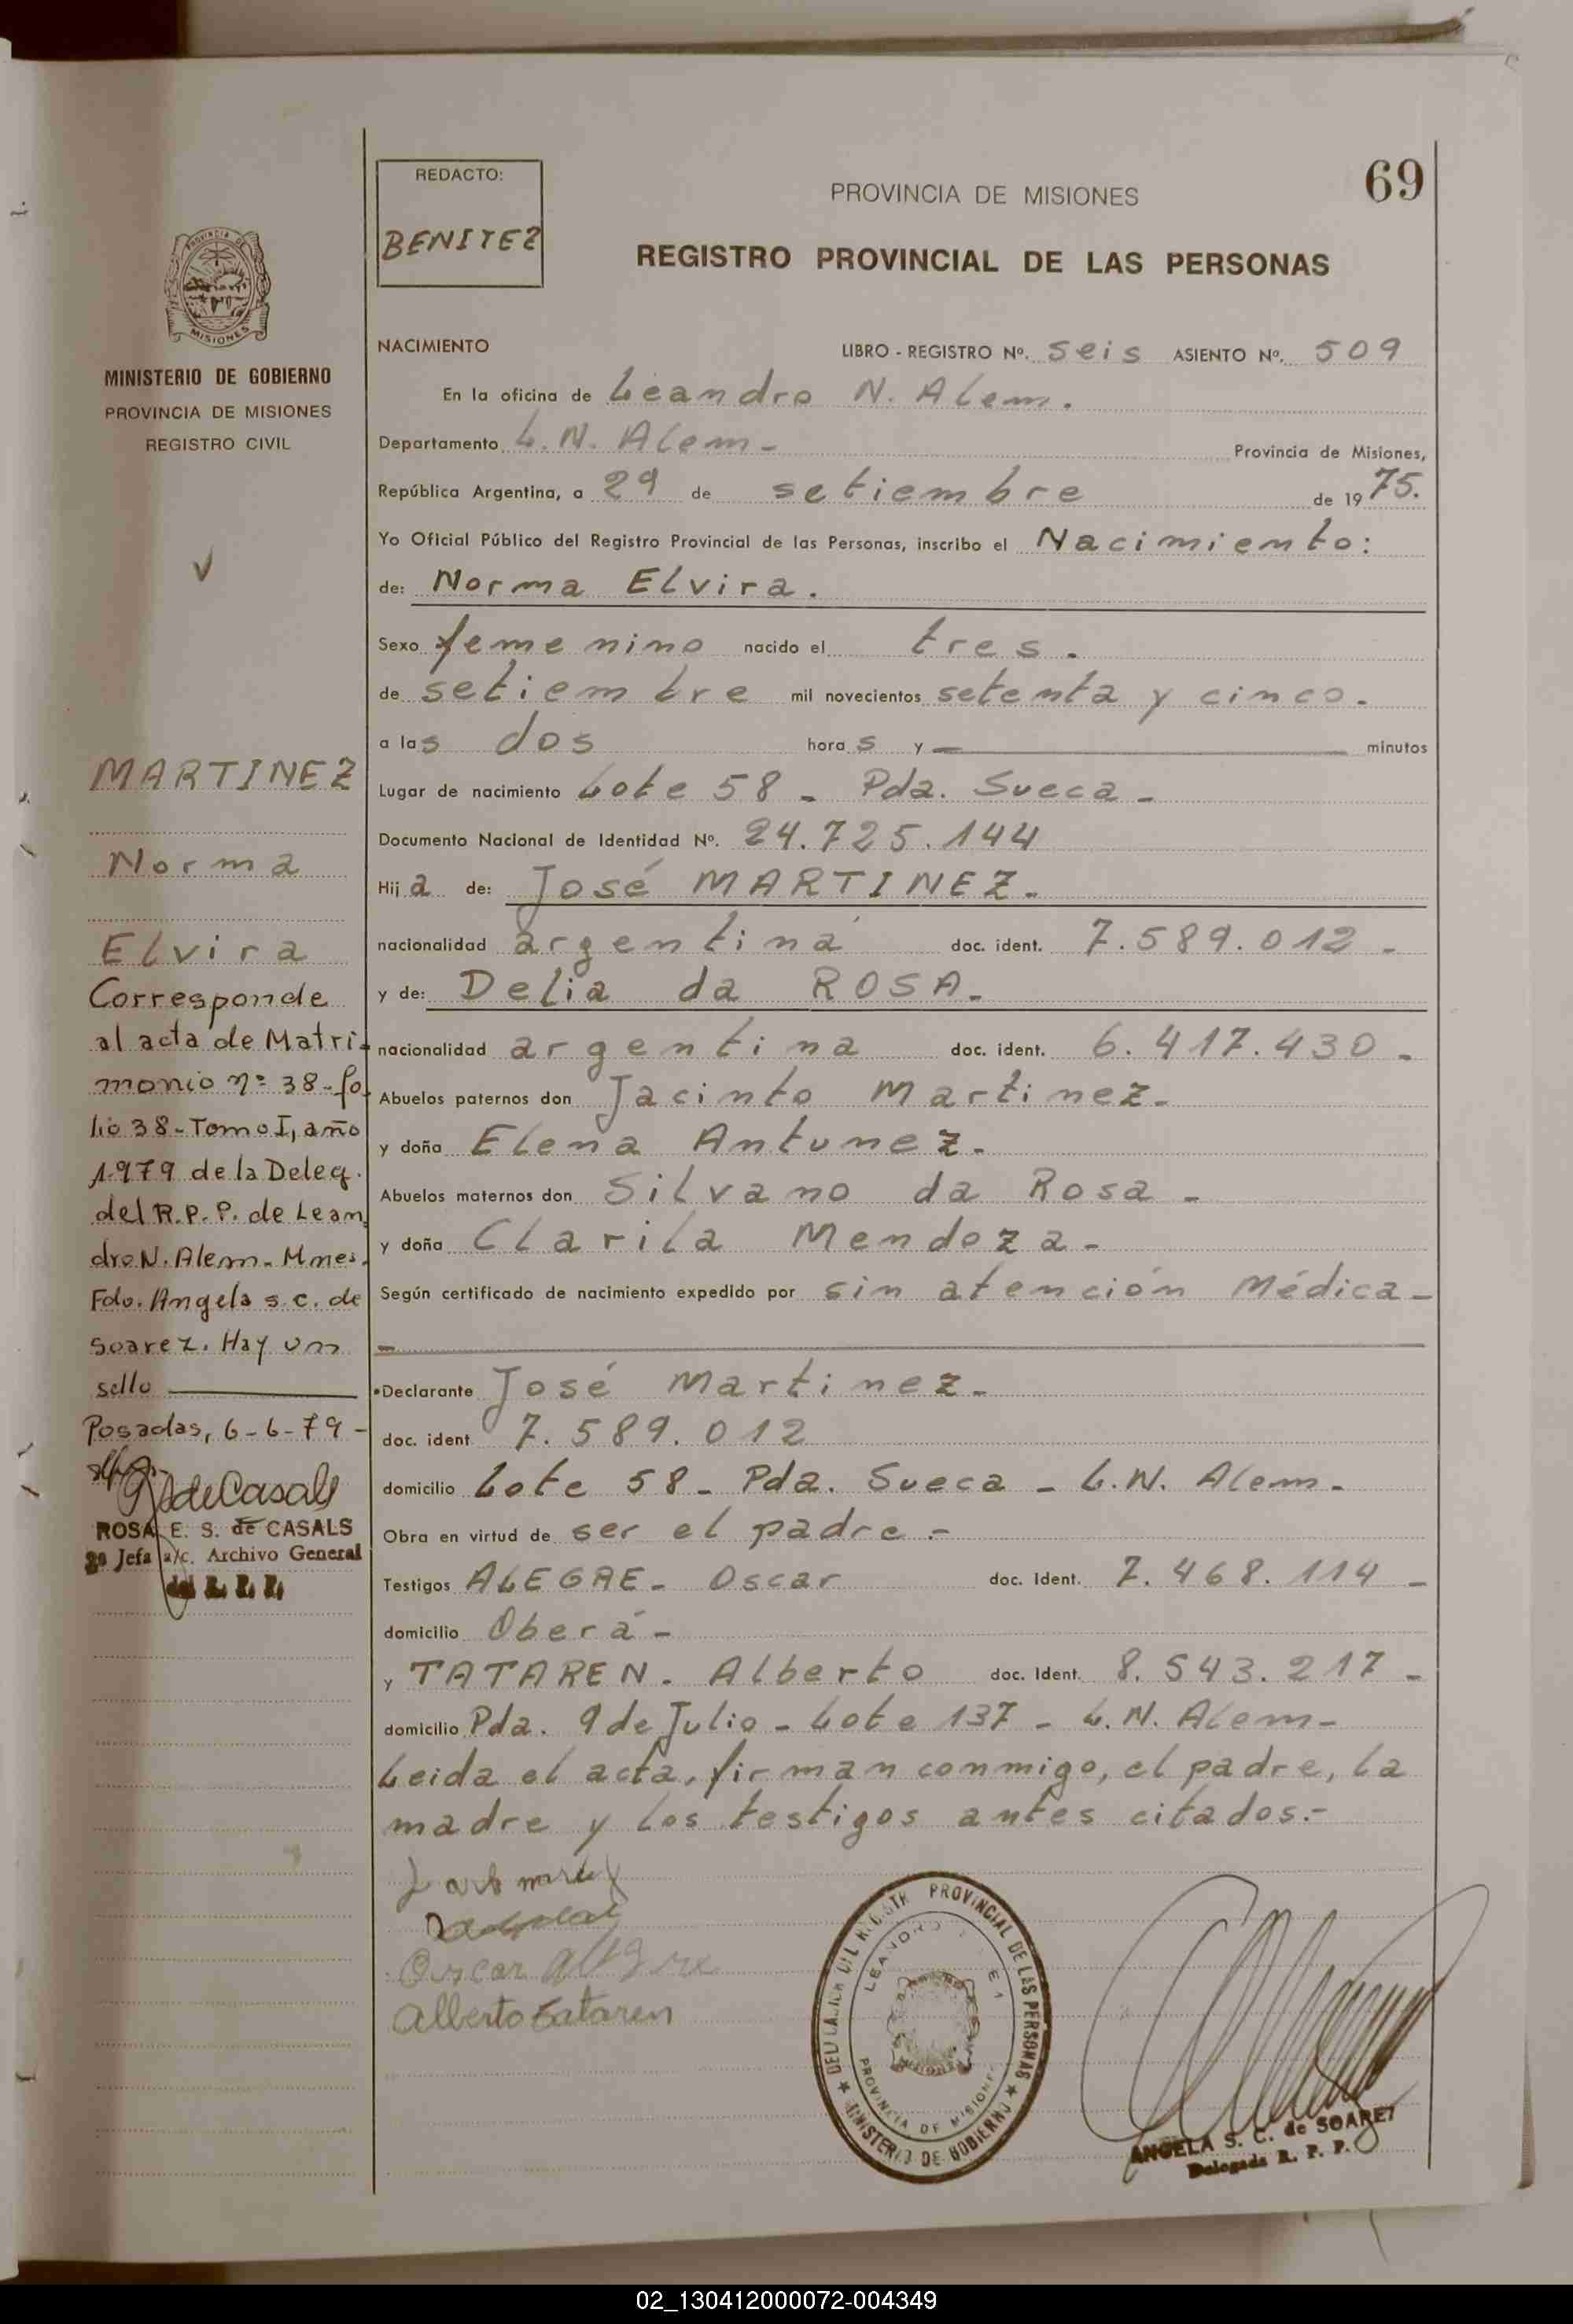 69
REDACTO:
BENITEZ
PROVINCIA DE MISIONES
REGISTRO PROVINCIAL DE LAS PERSONAS
PROVINCIA DE
MISIONES
MINISTERIO DE GOBIERNO
PROVINCIA DE MISIONES
REGISTRO CIVIL
MARTINEZ
Norma
Elvira
Corresponde
al acta de Matri-
monio nº 38-fo-
lio 38-Tomo I, año
1979 de la Deleg.
del R.P.P. de Lean
dro N. Alem. Mnes.
Fdo. Angela s.c. de
soarez. Hay un
sello
Posadas, 6-6-79-
de Casals
ROSA E. S. de CASALS
2ª Jefa a/c. Archivo General
del R. P. P.
NACIMIENTO LIBRO - REGISTRO Nº. seis ASIENTO Nº. 509
En la oficina de Leandro N. Alem.
Departamento L.N. Alem- Provincia de Misiones,
República Argentina, a 29 de setiembre de 1975.
Yo Oficial Público del Registro Provincial de las Personas, inscribo el Nacimiento:
de: Norma Elvira.
Sexo femenino nacido el tres.
de setiembre mil novecientos setenta y cinco.
a las dos horas y — minutos
Lugar de nacimiento Lote 58 - Pda. Sueca -
Documento Nacional de Identidad Nº. 24.725.144
Hija de: José MARTINEZ.
nacionalidad argentina doc. ident. 7.589.012 -
y de: Delia da ROSA.
nacionalidad argentina doc. ident. 6.417.430 -
Abuelos paternos don Jacinto Martinez-
y doña Elena Antunez-
Abuelos maternos don Silvano da Rosa -
y doña Clarila Mendoza-
Según certificado de nacimiento expedido por sin atención Médica-
Declarante José Martinez-
doc. ident 7.589.012
domicilio Lote 58 - Pda. Sueca - L.N. Alem.
Obra en virtud de ser el padre -
Testigos ALEGRE- Oscar doc. Ident. 7.468.114 -
domicilio Oberá -
y TATAREN. Alberto doc. Ident. 8.543.217 -
domicilio Pda. 9 de Julio - Lote 137 - L.N. Alem-
Leida el acta, firman conmigo, el padre, la
madre y los testigos antes citados.-
Oscar Alegre
Alberto Tataren
PROVINCIAL DE LAS PERSONAS
LEANDRO
PROVINCIA DE MISIONES
MINISTERIO DE GOBIERNO
ANGELA S. C. de SOAREZ
Delegada R. P. P.
02_130412000072-004349